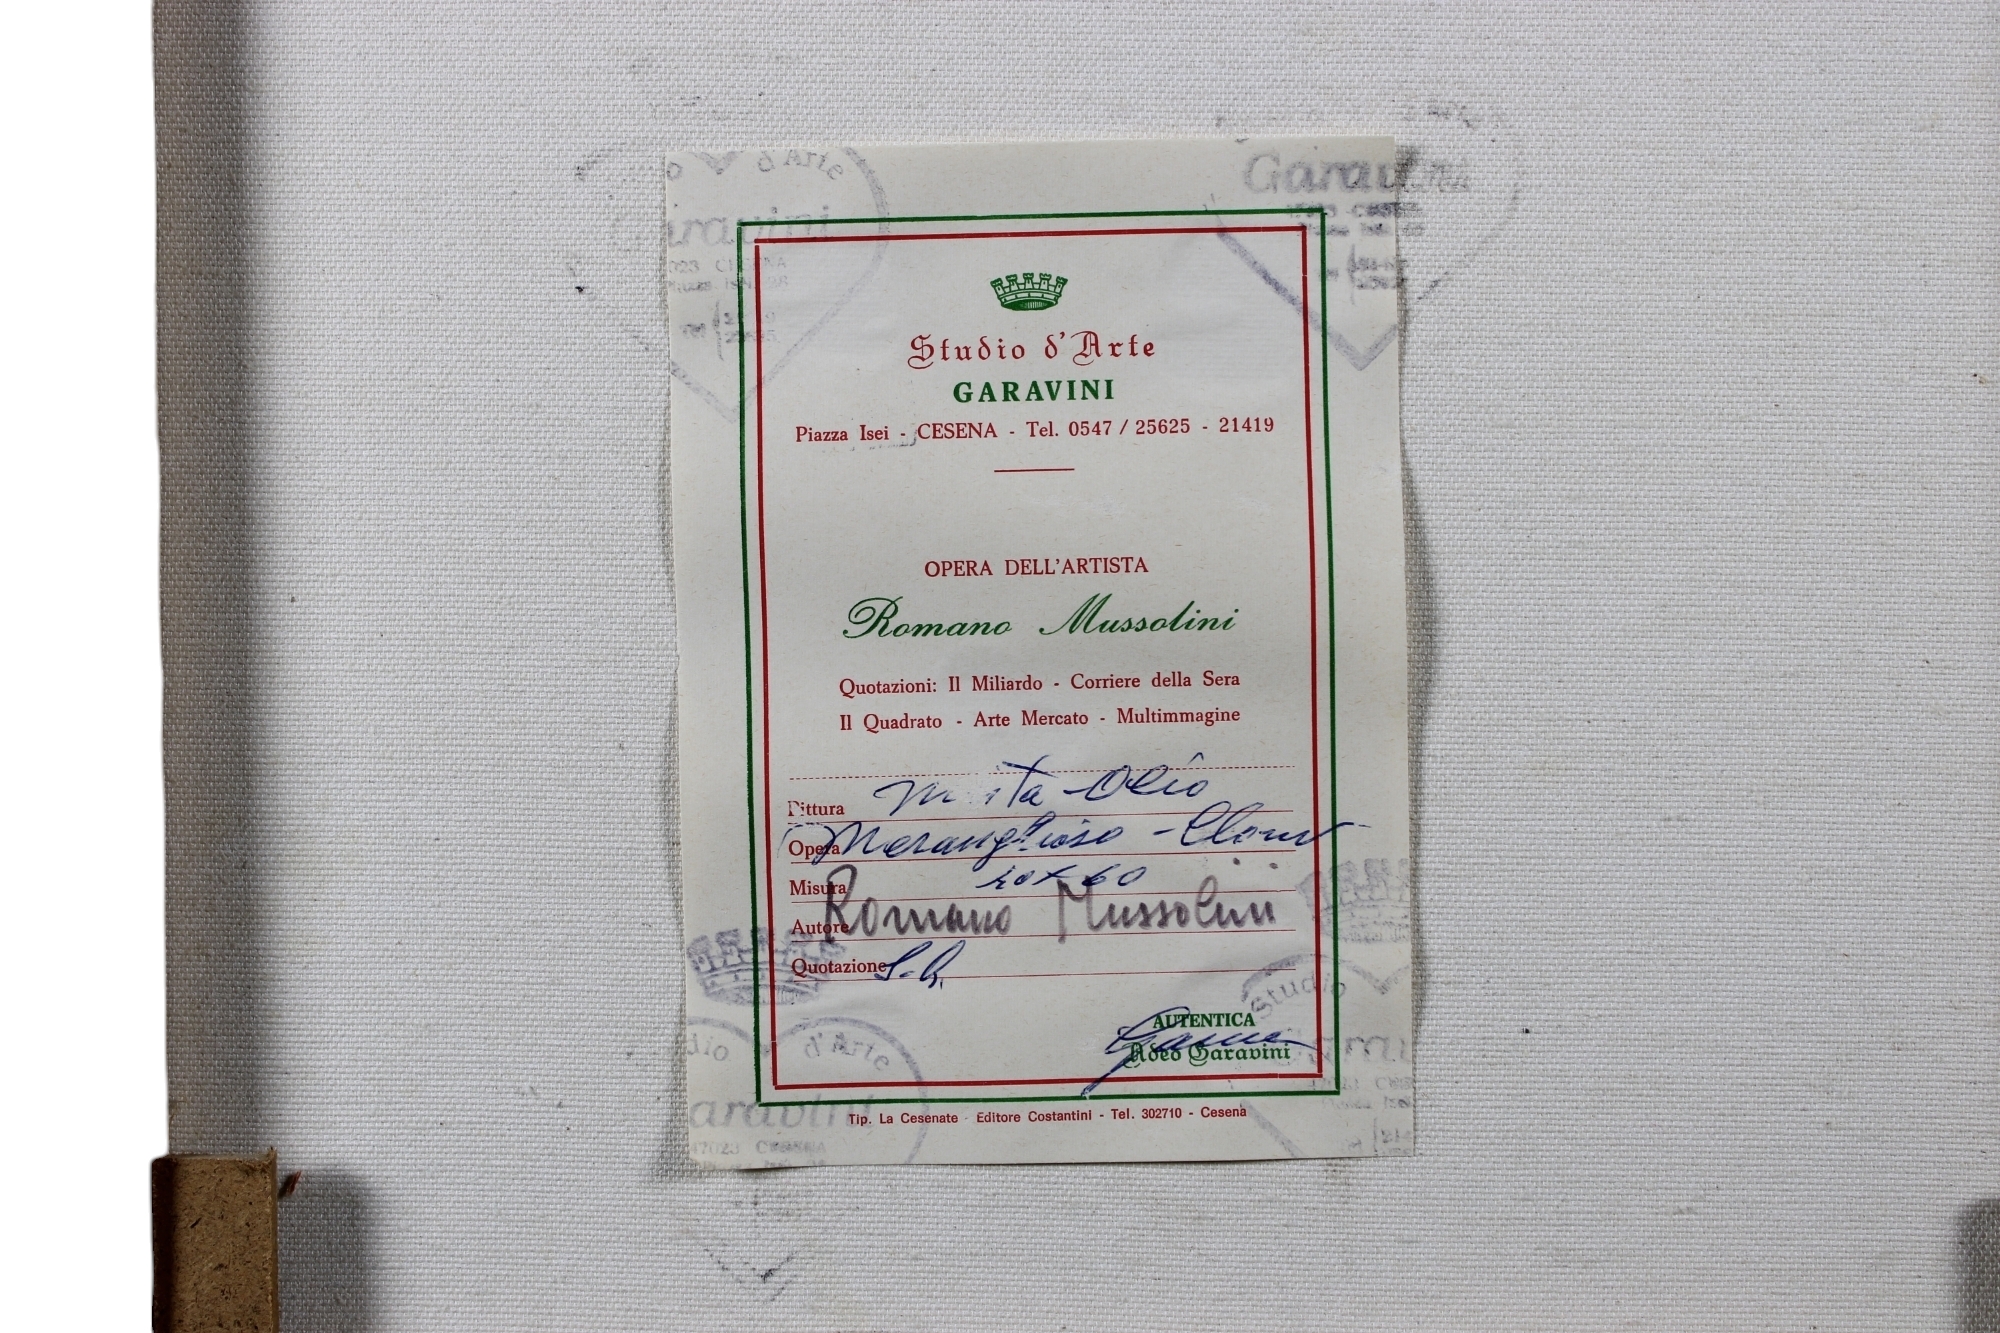 Studio d'Arte
GARAVINI
Piazza Isei - CESENA - Tel. 0547 / 25625 - 21419
OPERA DELL'ARTISTA
Romano Mussolini
Quotazioni: Il Miliardo - Corriere della Sera
Il Quadrato - Arte Mercato - Multimmagine
Pittura Mista Olio
Opera Meraviglioso - Clown
Misura x 60
Autore Romano Mussolini
Quotazione
AUTENTICA
Adeo Garavini
Tip. La Cesenate - Editore Costantini - Tel. 302710 - Cesena
d'Arte
Garavini
Garavini
Studio
d'Arte